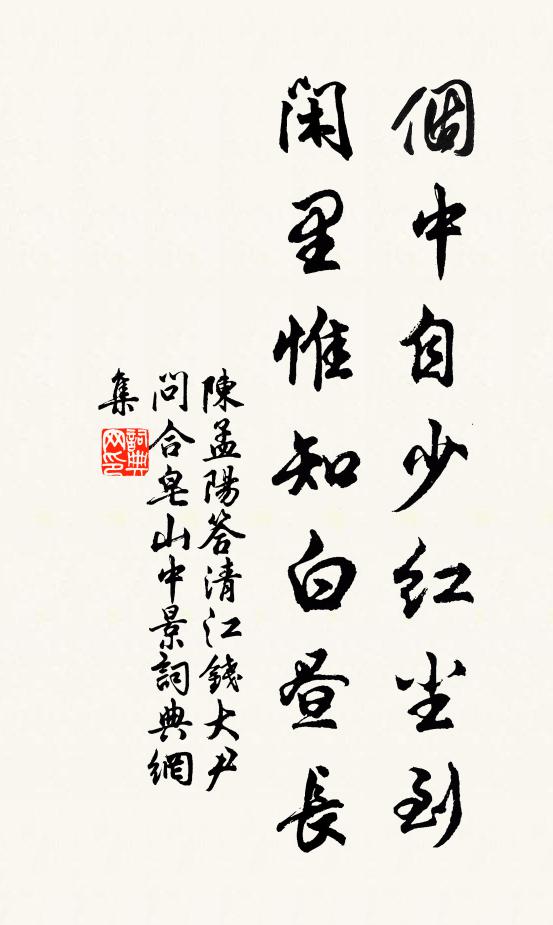 個中自少紅尘到
閑里惟知白昼長
陳孟陽答清江錢大尹
問合皂山中景詞典網
集
詞典
网印